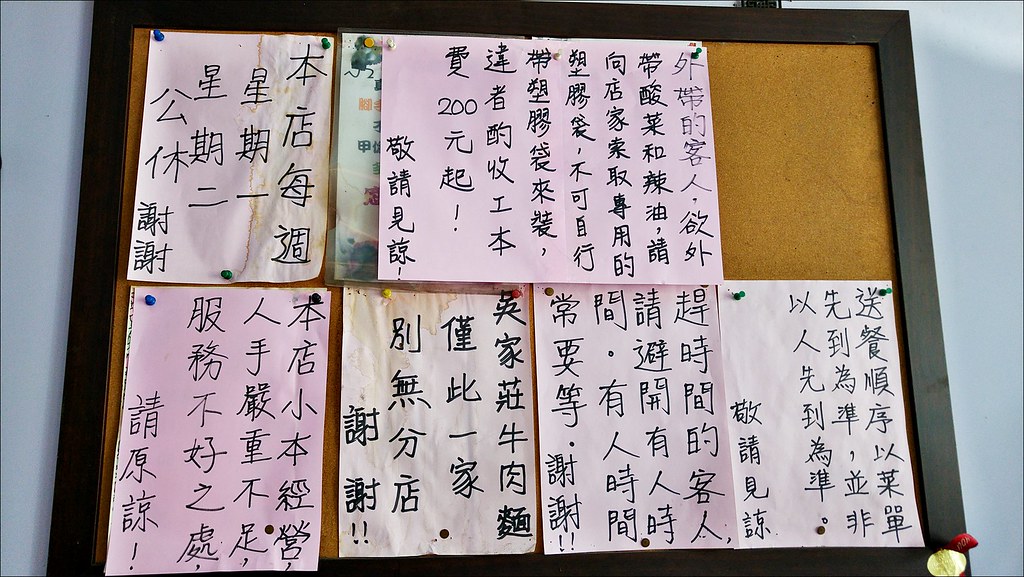 本店每週
星期一
星期二
公休
謝謝
外帶的客人，欲外
帶酸菜和辣油，請
向店家索取專用的
塑膠袋，不可自行
帶塑膠袋來裝，
違者酌收工本
費200元起！
敬請見諒！
本店小本經營，
人手嚴重不足，
服務不好之處，
請原諒！
吳家莊牛肉麵
僅此一家
別無分店
謝謝!!
趕時間的客人，
請避開有人時
間。有人時間
常要等．謝謝!!
送餐順序以菜單
先到為準，並非
以人先到為準。
敬請見諒